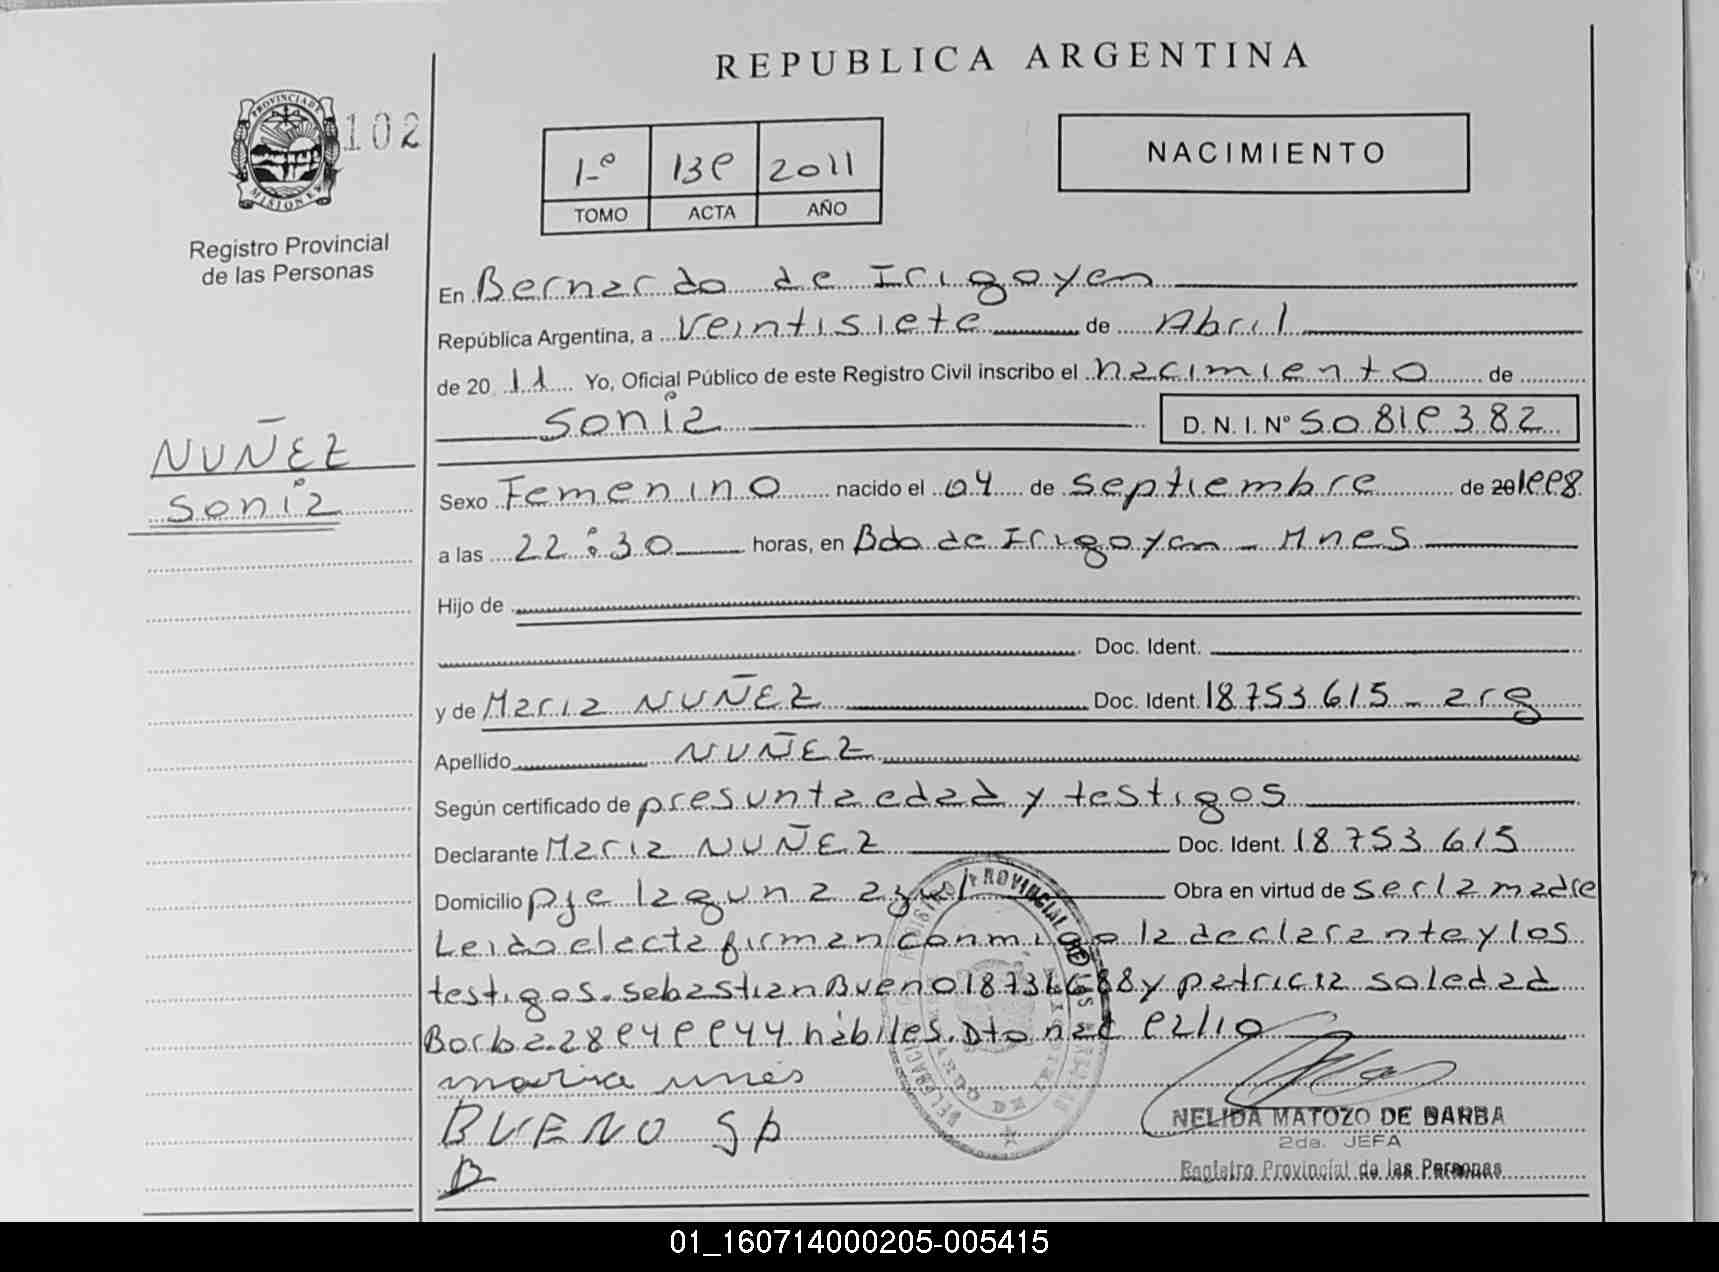 REPUBLICA ARGENTINA
PROVINCIA DE
MISIONES
102
Registro Provincial
de las Personas
1º 139 2011
TOMO ACTA AÑO
NACIMIENTO
En Bernardo de Irigoyen
República Argentina, a Veintisiete de Abril
de 20 11 Yo, Oficial Público de este Registro Civil inscribo el nacimiento de
Sonia D. N. I. Nº 50.819.382
NUÑEZ
Sonia
Sexo Femenino nacido el 04 de Septiembre de 20 1998
a las 22:30 horas, en Bdo de Irigoyen - Mnes
Hijo de
Doc. Ident.
y de Maria NUÑEZ Doc. Ident. 18.753.615 - arg
Apellido NUÑEZ
Según certificado de presunta edad y testigos
Declarante Maria NUÑEZ Doc. Ident. 18.753.615
Domicilio pje laguna azul Obra en virtud de ser la madre
Leido el acta firman conmigo la declarante y los
testigos. Sebastian Bueno y patricia soledad
Borba 28949944 hábiles. Dto nac 92/10
BUENO
NELIDA MATOZO DE BARBA
2da. JEFA
Registro Provincial de las Personas
01_160714000205-005415